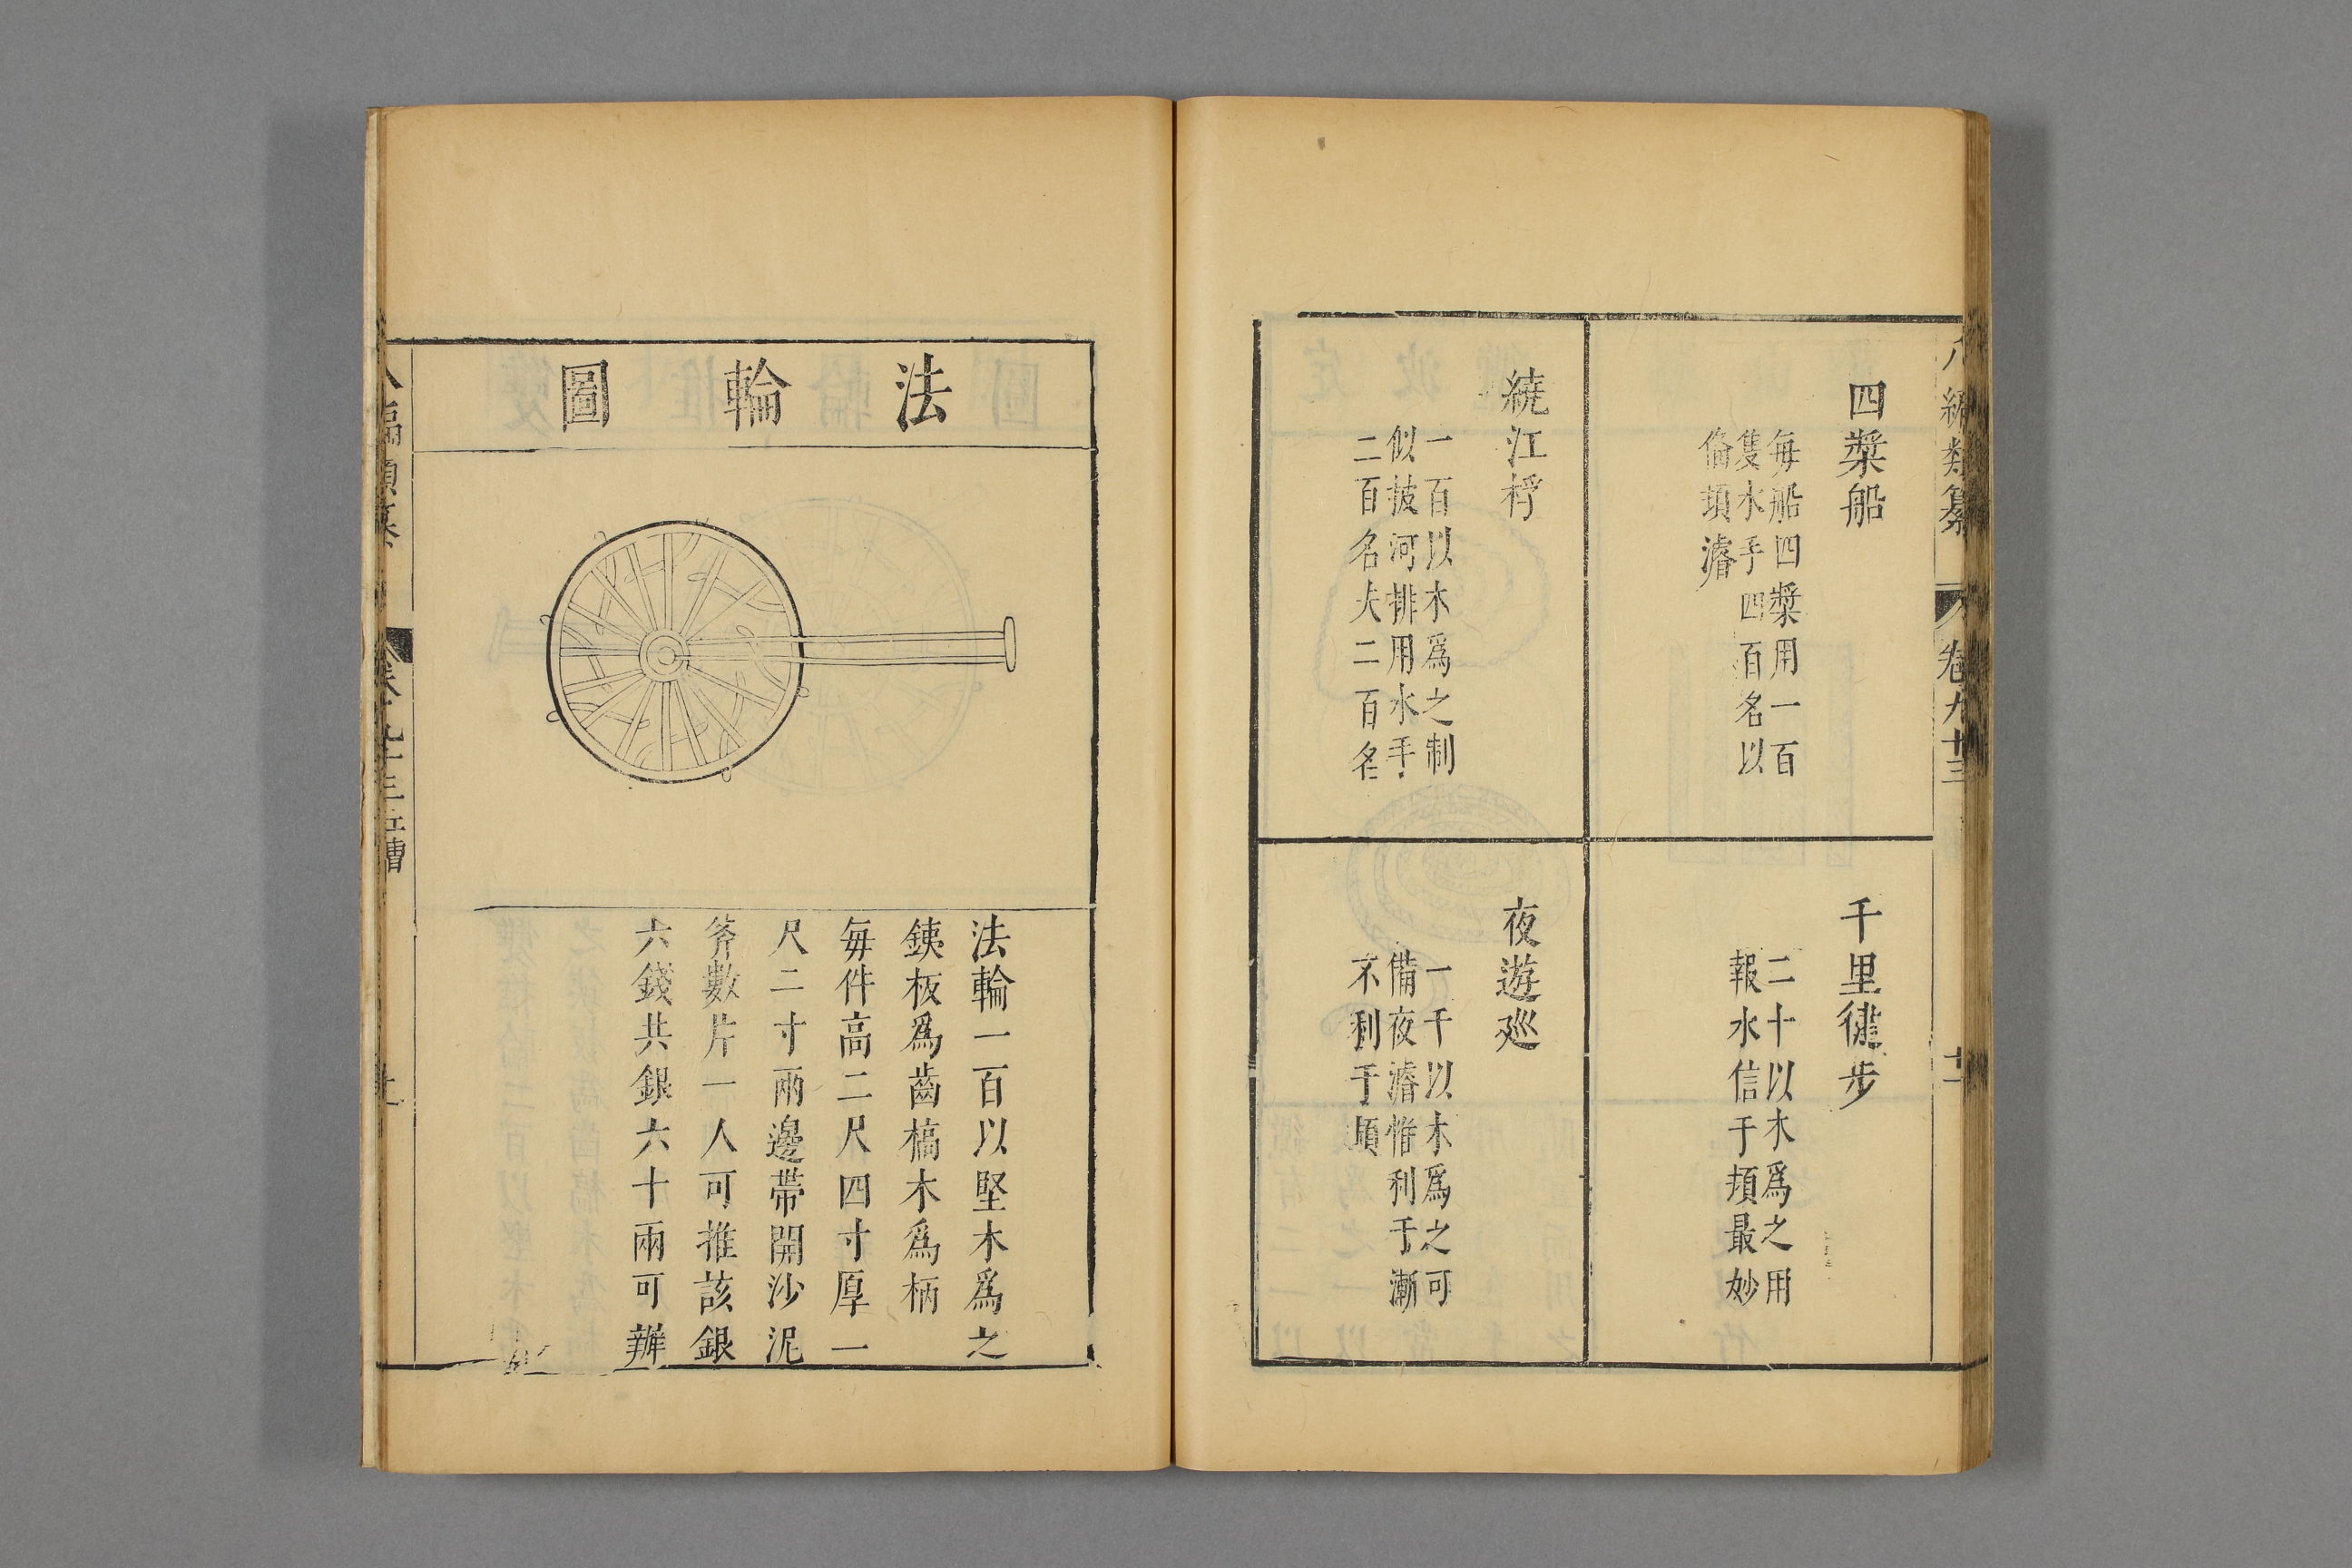 八編類纂 卷九十三
四槳船
每船四槳用一百
隻水手四百名以
備頓濬
千里健步
二十以木爲之用
報水信于頓最妙
繞江桴
一百以木爲之制
似披河排用水手
二百名夫二百名
夜遊巡
一千以木爲之可
備夜濬惟利于漸
不利于頓
法輪圖
法輪一百以堅木爲之
鉄板爲齒槁木爲柄
每件高二尺四寸厚一
尺二寸兩邊帶開沙泥
斧數片一人可推該銀
六錢共銀六十兩可辦